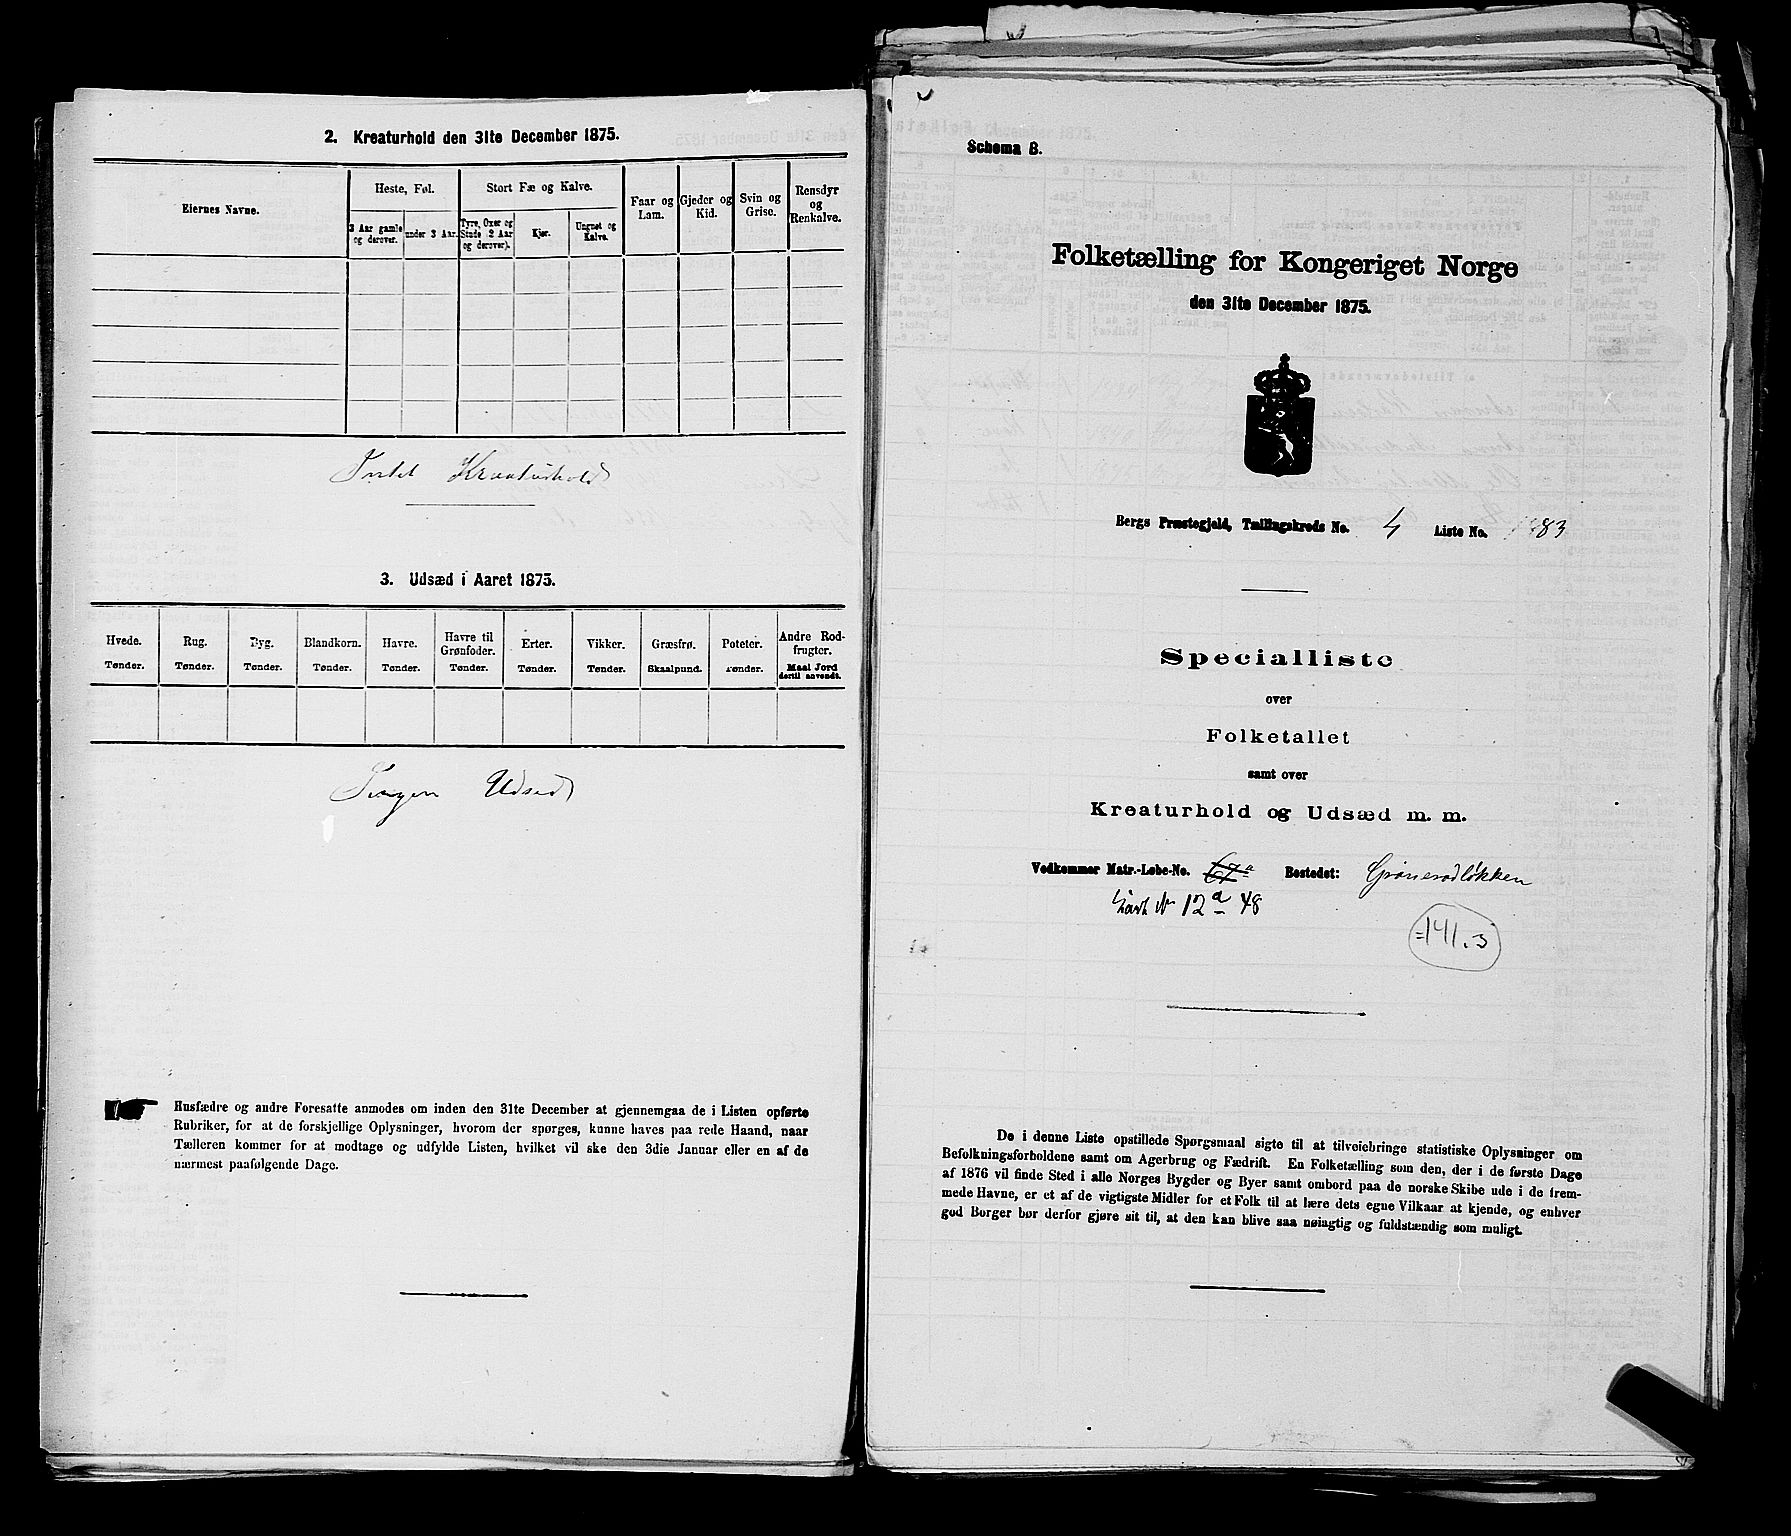 2. Kreaturhold den 31te December 1875.
Eiernes Navne.
Heste, Føl.
Stort Fæ og Kalve.
Faar og Lam.
Gjeder og Kid.
Svin og Grise.
Rensdyr og Renkalve.
3 Aar gamle og derover.
under 3 Aar.
Tyre, Oxer og Stude (2 Aar og derover).
Kjør.
Ungnøt og Kalve.
Intet Kreaturhold
3. Udsæd i Aaret 1875.
Hvede. Tønder.
Rug. Tønder.
Byg. Tønder.
Blandkorn. Tønder.
Havre. Tønder.
Havre til Grønfoder. Tønder.
Erter. Tønder.
Vikker. Tønder.
Græsfrø. Skaalpund.
Poteter. Tønder.
Andre Rodfrugter. Maal Jord dertil anvendt.
Ingen Udsæd
Husfædre og andre Foresatte anmodes om inden den 31te December at gjennemgaa de i Listen opførte
Rubriker, for at de forskjellige Oplysninger, hvorom der spørges, kunne haves paa rede Haand, naar
Tælleren kommer for at modtage og udfylde Listen, hvilket vil ske den 3die Januar eller en af de
nærmest paafølgende Dage.
Schema B.
Folketælling for Kongeriget Norge
den 31te December 1875.
Bergs Præstegjeld, Tællingskreds No. 4 Liste No. 83
Specialliste
over
Folketallet
samt over
Kreaturhold og Udsæd m. m.
Vedkommer Matr.-Løbe-No. 67a Bostedet: Grønerødløkken
12a 48
=141.3
De i denne Liste opstillede Spørgsmaal sigte til at tilveiebringe statistiske Oplysninger om
Befolkningsforholdene samt om Agerbrug og Fædrift. En Folketælling som den, der i de første Dage
af 1876 vil finde Sted i alle Norges Bygder og Byer samt ombord paa de norske Skibe ude i de frem-
mede Havne, er et af de vigtigste Midler for et Folk til at lære dets egne Vilkaar at kjende, og enhver
god Borger bør derfor gjøre sit til, at den kan blive saa nøiagtig og fuldstændig som muligt.